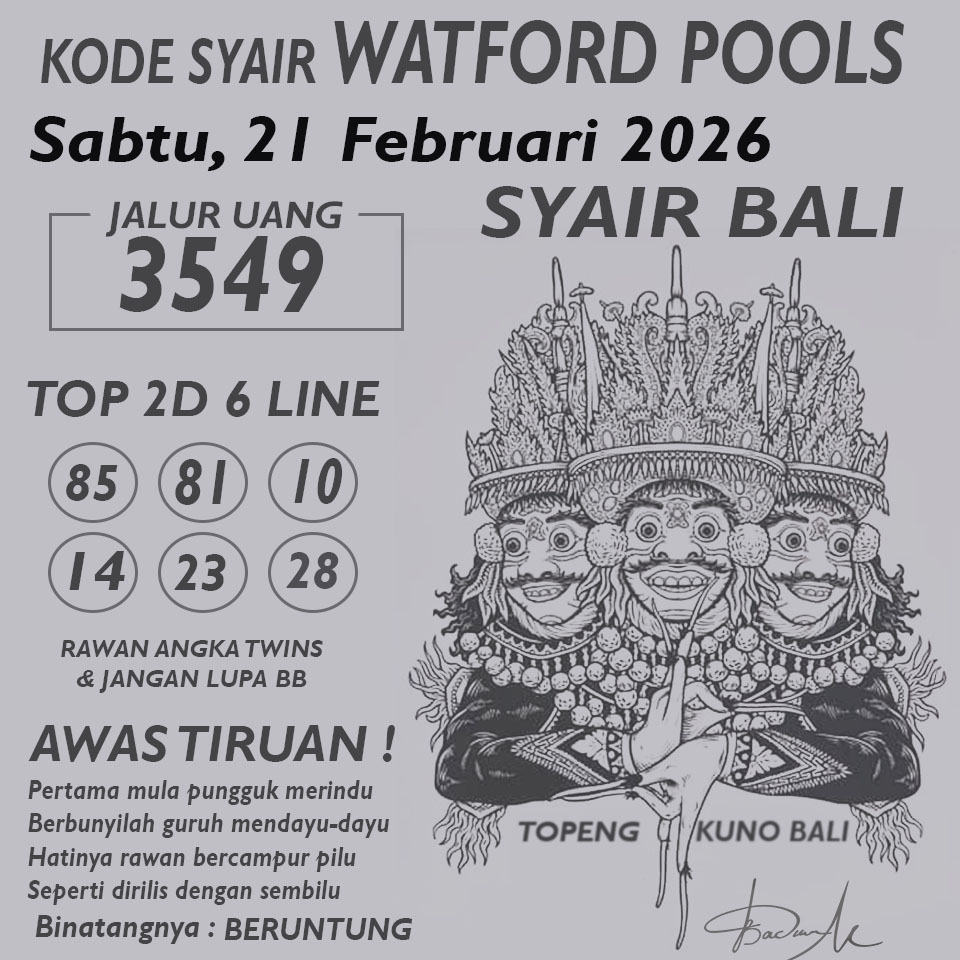 KODE SYAIR WATFORD POOLS
Sabtu, 21 Februari 2026
SYAIR BALI
JALUR UANG
3549
TOP 2D 6 LINE
85 81 10
14 23 28
RAWAN ANGKA TWINS
& JANGAN LUPA BB
AWAS TIRUAN !
Pertama mula pungguk merindu
Berbunyilah guruh mendayu-dayu
Hatinya rawan bercampur pilu
Seperti dirilis dengan sembilu
Binatangnya : BERUNTUNG
TOPENG KUNO BALI